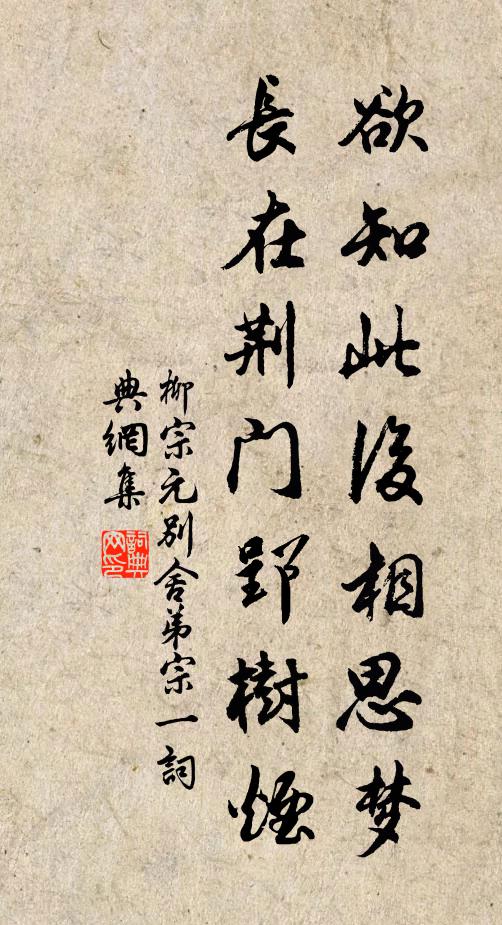 欲知此後相思梦
長在荆门郢樹煙
柳宗元别舍弟宗一詞
典網集
詞典
网印